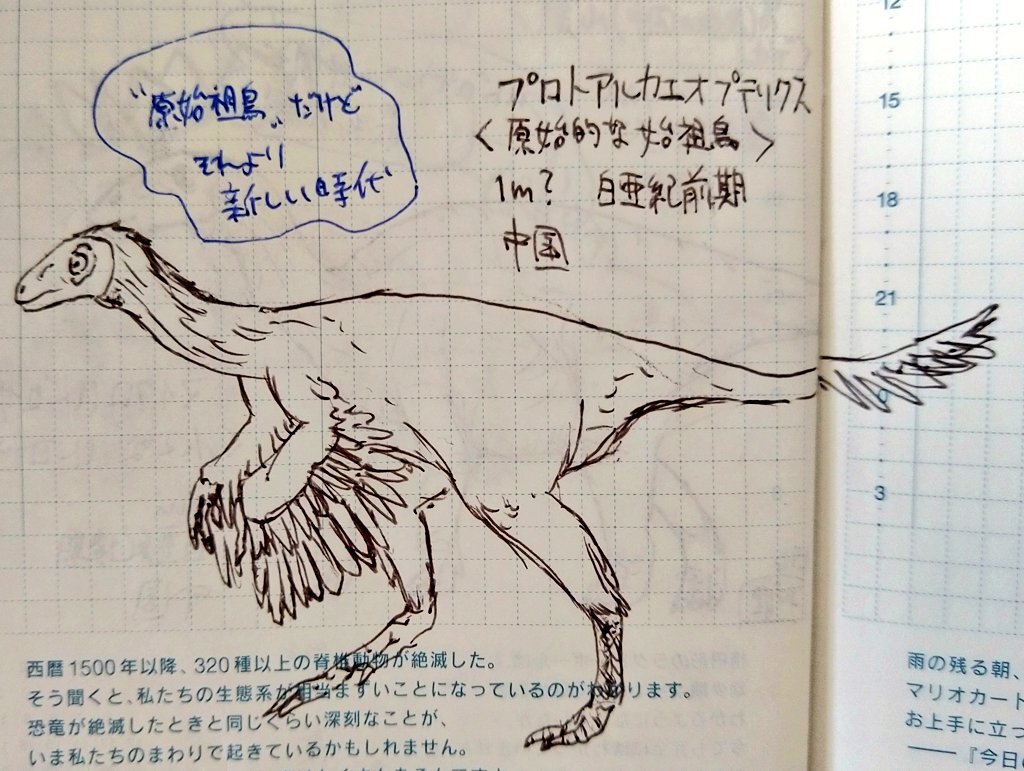 “原始祖鳥„だけど
それより
新しい時代
プロトアルカエオプテリクス
<原始的な始祖鳥>
1m? 白亜紀前期
中国
12
15
18
21
0
3
西暦1500年以降、320種以上の脊椎動物が絶滅した。
そう聞くと、私たちの生態系が相当まずいことになっているのがわかります。
恐竜が絶滅したときと同じくらい深刻なことが、
いま私たちのまわりで起きているかもしれません。
雨の残る朝、
マリオカート
お上手に立っ
――『今日の